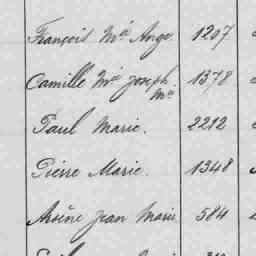 François Mie Ange 1207
Camille Mie Joseph 1378
Mie
Paul Marie. 2212
Pierre Marie. 1348
Arsène Jean Marie 584